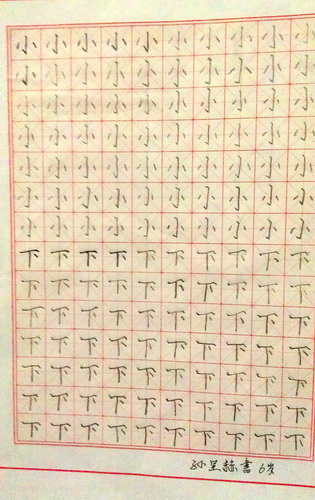 小小小小小小小小小小
小小小小小小小小小小
小小小小小小小小小小
小小小小小小小小小小
小小小小小小小小小小
小小小小小小小小小小
小小小小小小小小小小
下下下下下下下下下下
下下下下下下下下下下
下下下下下下下下下下
下下下下下下下下下下
下下下下下下下下下下
下下下下下下下下下下
下下下下下下下下下下
孙 書 6岁